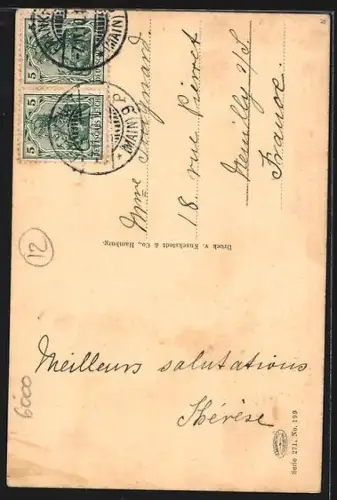 5
DEUTSCHES REICH
5
DEUTSCHES REICH
(MAIN)
(MAIN)
Mme
18 rue Pierret
Neuilly s/S
France
Druck v. Knackstedt & Co., Hamburg.
12
Meilleurs salutations
Thérèse
6000
Serie 271. No. 199